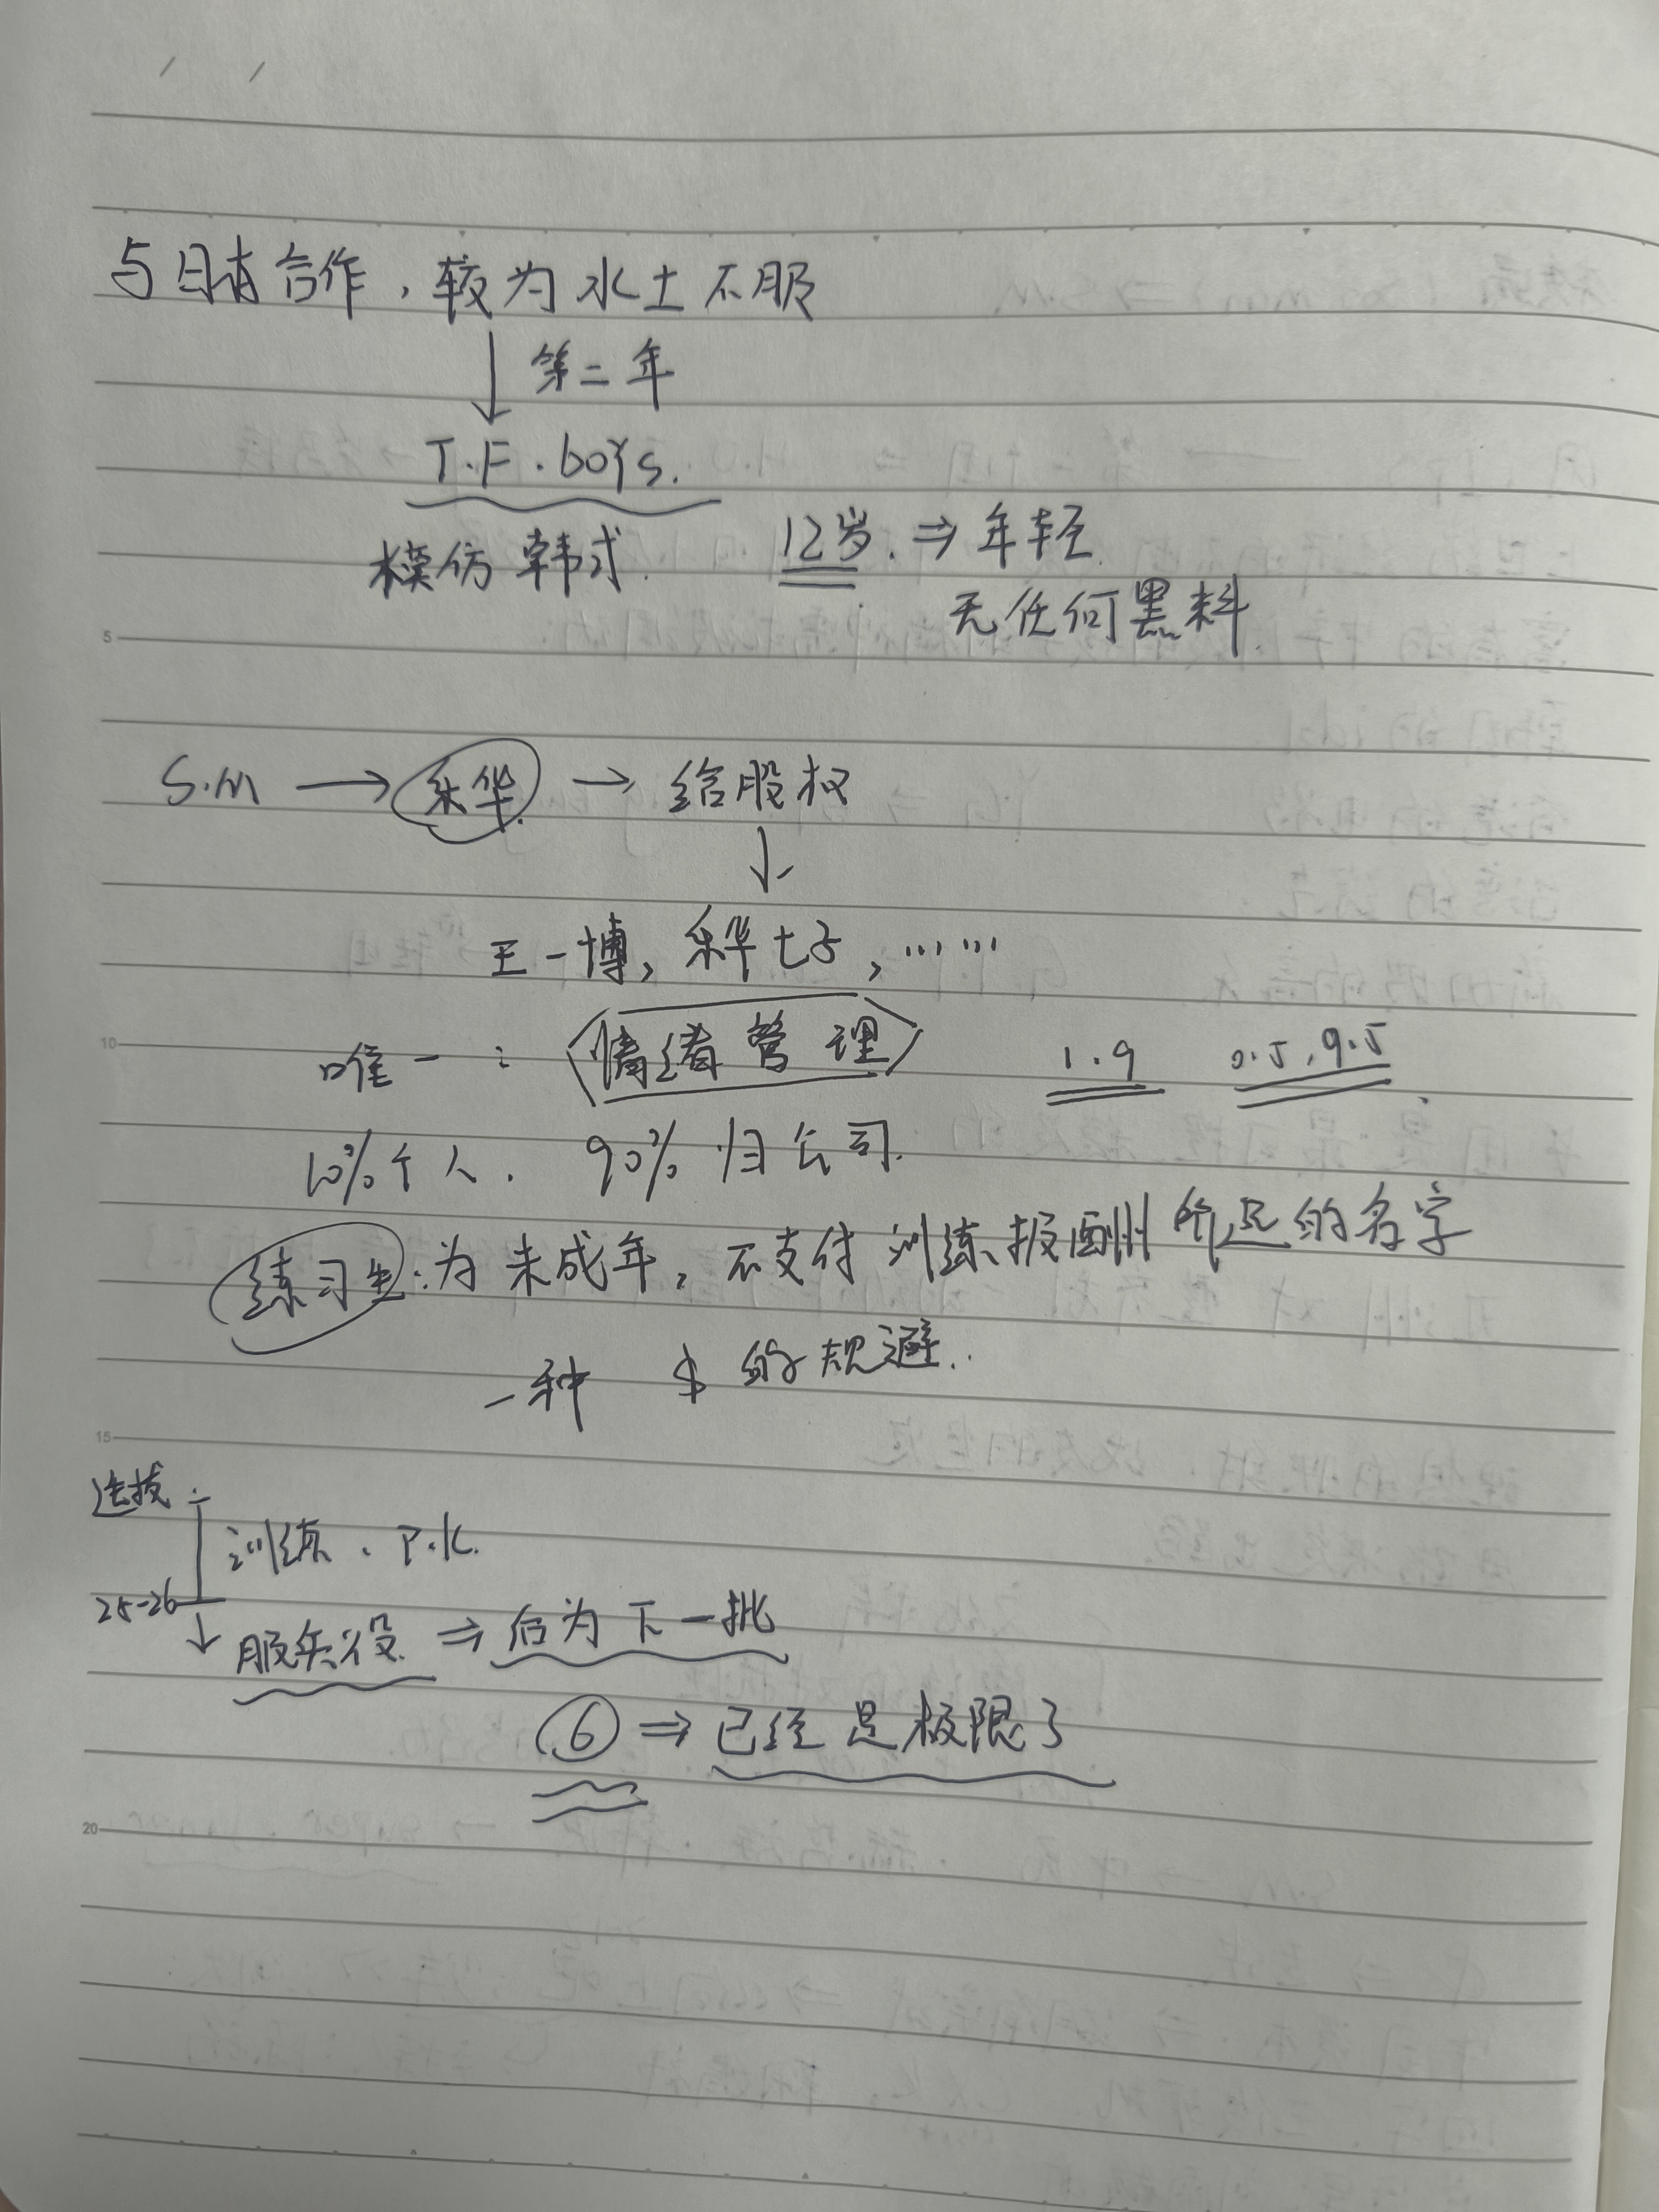 与日有合作，较为水土不服
↓ 第二年
T.F.boys.
模仿韩式. 12岁. ⇒ 年轻.
无任何黑料.
S.M → 乐华. → 给股权
↓
王一博, 乐华七子, ……
唯一: 情绪管理 1.9 0.5, 9.5
10%个人. 90%归公司.
练习生: 为未成年, 不支付训练报酬所起的名字
一种 $ 的规避..
选拔
训练、P.K.
25-26
↓ 服兵役. ⇒ 后为下一批
⑥ ⇒ 已经是极限了
5
10
15
20